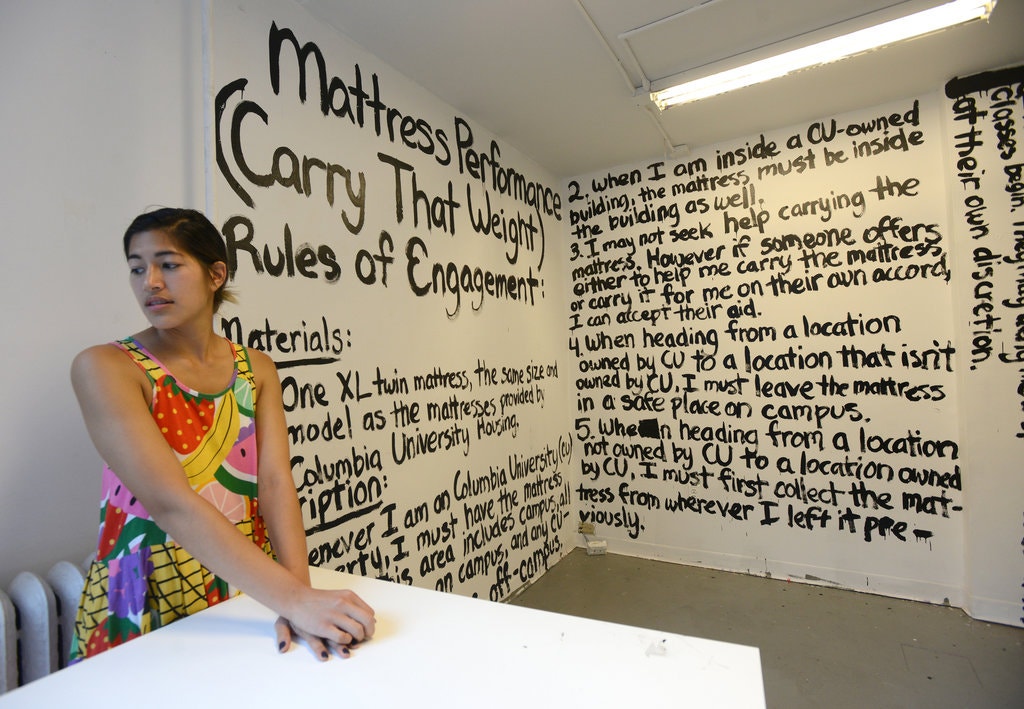 Mattress Performance
(Carry That Weight)
Rules of Engagement:
Materials:
One XL twin mattress, the same size and
model as the mattresses provided by
Columbia University Housing.
ription:
enever I am on Columbia University (CU)
erty, I must have the mattress
this area includes campus, all
on campus, and any CU-
off-campus.
2. When I am inside a CU-owned
building, the mattress must be inside
the building as well.
3. I may not seek help carrying the
mattress. However if someone offers
either to help me carry the mattress
or carry it for me on their own accord,
I can accept their aid.
4. When heading from a location
owned by CU to a location that isn't
owned by CU, I must leave the mattress
in a safe place on campus.
5. When heading from a location
not owned by CU to a location owned
by CU, I must first collect the mat-
tress from wherever I left it pre-
viously.
classes begin.
at their own discretion.